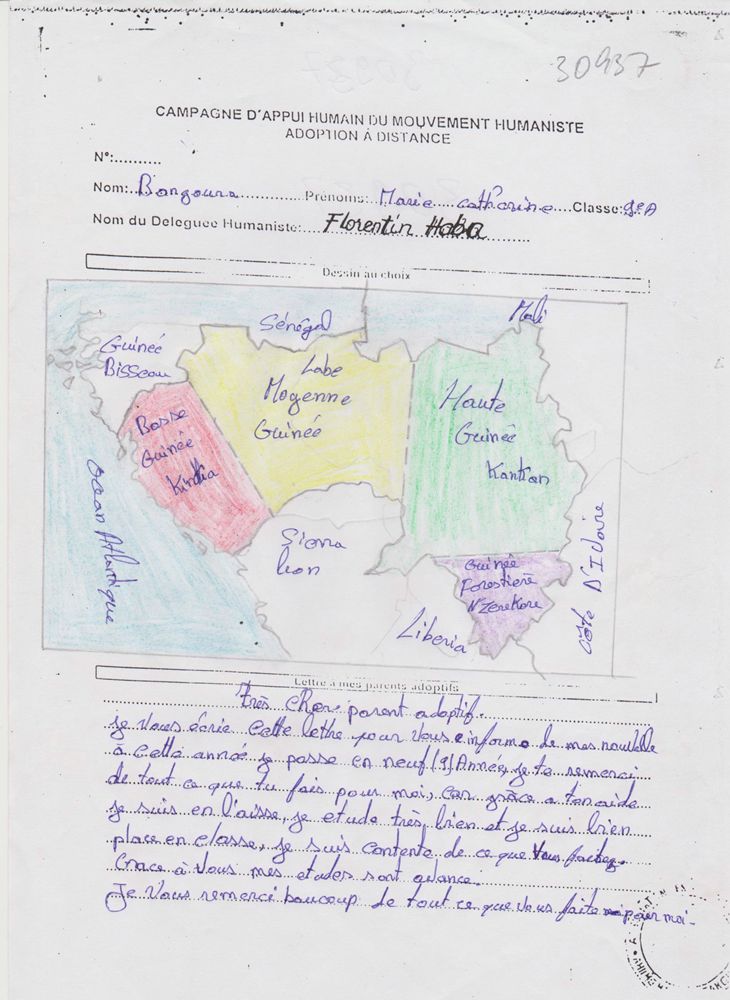 30937
CAMPAGNE D'APPUI HUMAIN DU MOUVEMENT HUMANISTE
ADOPTION À DISTANCE
N°:..........
Nom: Bangoura Prénoms: Marie catherine Classe: 9e A
Nom du Deleguee Humaniste: Florentin Haba
Dessin au choix
Mali
Sénégal
Guineé
Bisseau
Labe
Moyenne
Guinée
Haute
Guineé
Kankan
Basse
Guinée
Kindia
Ocean Atlantique
Sierra
leon
Guinée
Forestiere
N'Zerekore
Liberia
côte D'Ivoire
Lettre à mes parents adoptifs
très cher parent adoptif.
je vous écrie cette lettre pour vous informe de mes nouvelle
à cette année je passe en neuf (9) Année, je te remerci
de tout ce que tu fais pour moi, car grâce a ton aide
je suis en l'aisse, je etude très bien et je suis bien
place en classe, je suis contente de ce que vous faitez.
Grace à vous mes etudes sont avance.
Je vous remerci beaucoup de tout ce que vous faite pour moi.